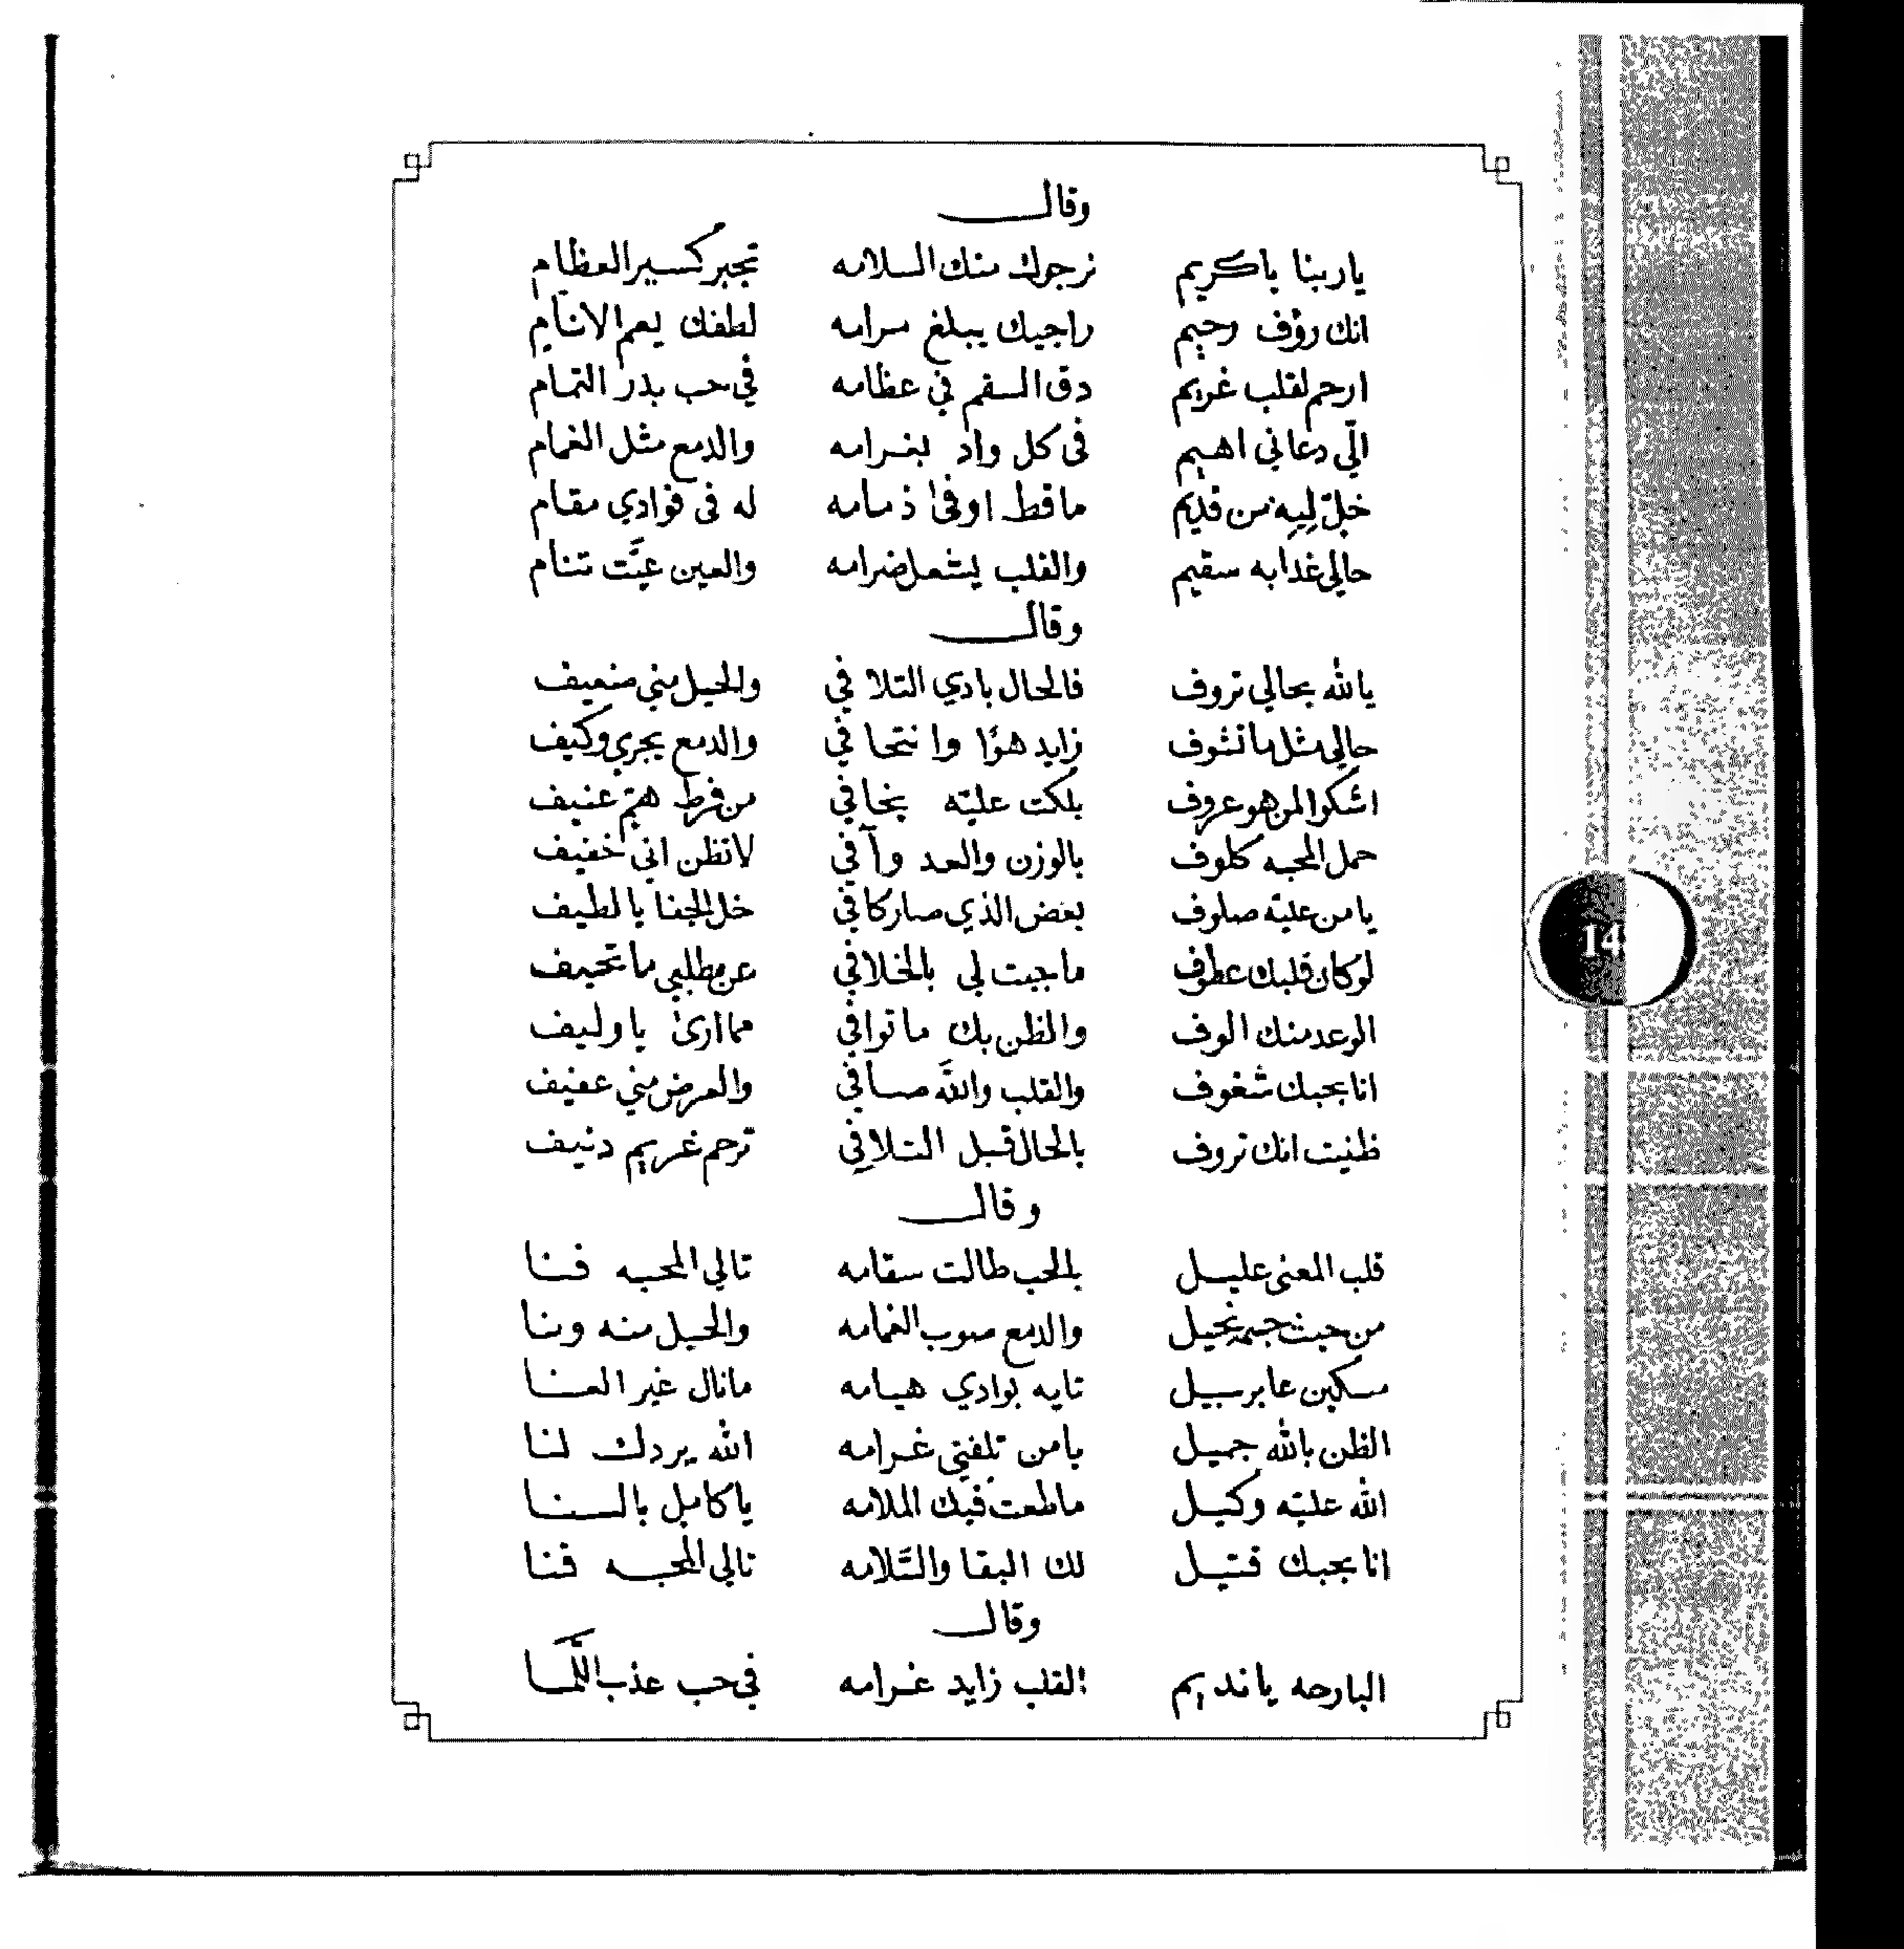 وقال
ياربنا ياكريم نرجوك منك السلامه تجبر كسير العظام
انك رؤف رحيم راجيك يبلغ مرامه لطفك يعم الانام
ارحم لقلب غريم دق السقم في عظامه في حب بدر التمام
الّي دعاني اهيم في كل واد بغرامه والدمع مثل الغمام
خلّ لِيِه من قديم ماقط اوفى ذمامه له في فوادي مقام
حالي غدابه سقيم والقلب يشعل ضرامه والعين عيَّت تنام
وقال
يالله بحالي تروف فالحال بادي التلافي والحيل مني ضعيف
حالي مثل ماتشوف زايد هوًا وانتحافي والدمع يجري وكيف
اشكوا لمن هو عروف بلكت عليّه يخافي من فرط همٍ عنيف
حمل المحبه كلوف بالوزن والعد وآفي لاتظن اني خفيف
يامن عليّه صلوف بعض الذي صار كافي خل الجفا يالطيف
لوكان قلبك عطوف ماجبت لي بالخلافي عن مطلبي ماتحيف
الوعد منك الوف والظن بك ماتوافي مما ارى ياوليف
انا بحبك شغوف والقلب واللَّه صافي والعرض مني عفيف
ظنيت انك تروف بالحال قبل التلافِي ترحم غريم دنيف
وقال
قلب المعنى عليل بالحب طالت سقامه تالي المحبه فنا
من حيث جسمه نحيل والدمع صوب الغمامه والحيل منه ونا
مسكين عابر سبيل تايه بوادي هيامه مانال غير العنا
الظن بالله جميل يامن تلفني غرامه الله يردك لنا
الله عليّه وكيل ماطعت فيك الملامه ياكامل بالسنا
انا بحبك قتيل لك البقا والسَّلامه تالي المحبه فنا
وقال
البارحه يانديم القلب زايد غرامه في حب عذب اللَّما
14